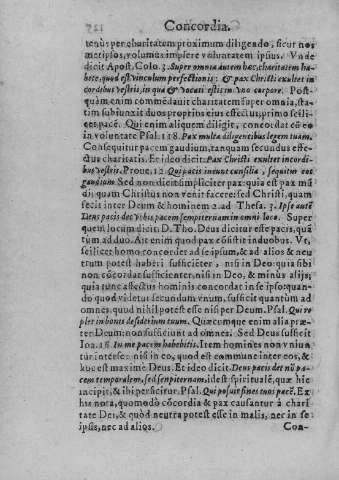 Concordia.
tenus per charitatem proximum diligendo, sicut nos
metipsos, volumus implere voluntatem ipsius. Vnde
dicit Apost. Colo. 3. Super omnia autem hec, charitatem ha-
bete, quod est vinculum perfectionis: & pax Christi exultet in
cordibus vestris, in qua & vocati estis in vno corpore. Post-
quàm enim commēdauit charitatem super omnia, sta-
tim subiunxit duos proprios eius effectus, primo scili-
cet pacē. Qui enim aliquem diligit, concordat cū eo
in voluntate Psal. 118. Pax multa diligentibus legem tuam.
Consequitur pacem gaudium, tanquam secundus effe-
ctus charitatis. Et ideo dicit. Pax Christi exultet in cordi-
bus vestris. Prouer. 12. Qui pacis ineunt consilia, sequitur eos
gaudium Sed non dicit simpliciter pax: quia est pax mū-
di quam Christus non venit facere: sed Christi, quam
fecit inter Deum & hominem 2. ad Thesa. 3. Ipse autē
Deus pacis det vobis pacem sempiternam in omni loco. Super
quem locum dicit D. Tho. Deus dicitur este pacis, quā
tum ad duo. Ait enim quod pax cōsistit in duobus. Vt,
scilicet homo concordet ad seipsum, & ad alios & neu
trum potest haberi sufficiēter, nisi in Deo: quia sibi
non cōcordat sufficienter, nisi in Deo, & minùs alijs;
quia tunc affectus hominis concordat in se ipso: quan-
do quod videtur secundum vnum, sufficit quantum ad
omnes, quod nihil potest esse nisi per Deum. Psal. Qui re
plet in bonis desiderium tuum. Quæcumque enim alia præ-
ter Deum: non sufficiunt ad omnia. Sed Deus sufficit
Ioa. 16. In me pacem habebitis. Item homines non vniun
tur inter se: nisi in eo, quod est commune inter eos, &
hoc est maximè Deus. Et ideo dicit. Deus pacis det nō pa-
cem temporalem, sed sempiternam, id est spirituale, quæ hic
incipit, & ibi perficitur. Psal. Qui posuit fines tuos pacē. Ex
his nota, quomodo cōcordia & pax causantur à chari
tate Dei, & quòd neutra potest esse in malis, nec in se
ipsis, nec ad alios.
Con-